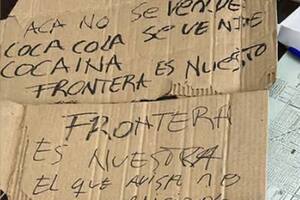 ACA NO SE VENDE
COCA COLA SE VENDE
COCAINA
FRONTERA ES NUESTO
FRONTERA
ES NUESTRA
EL QUE AVISA NO